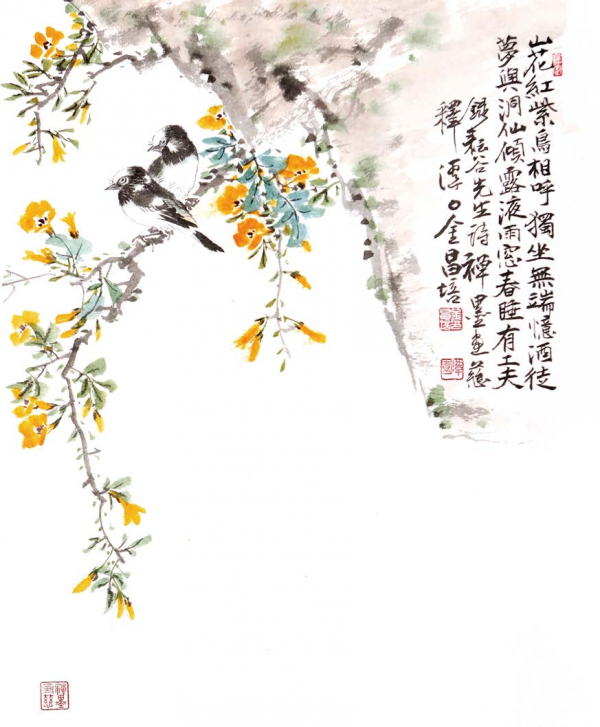 山花紅紫鳥相呼獨坐無端憶酒徒
夢與洞仙傾露液雨窓春睡有工夫
錄耘谷先生詩禪墨画慈
釋潭〇金昌培